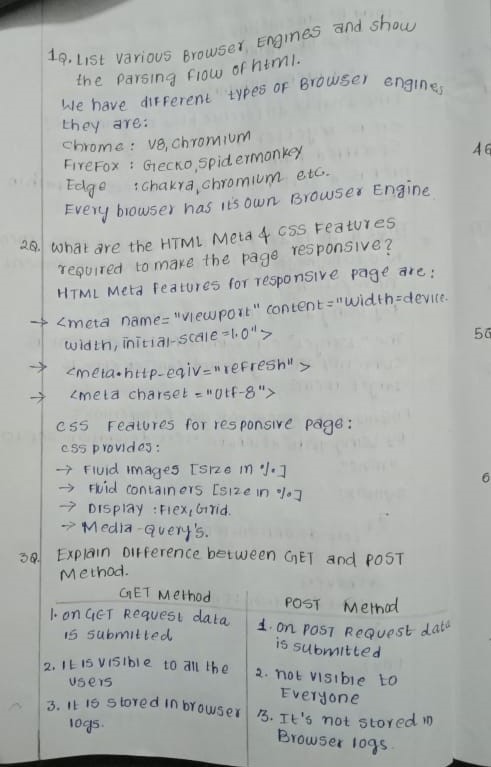 1Q. List various Browser Engines and show
the parsing flow of html.
We have different types of Browser engines
they are:
Chrome : V8, chromium
FireFox : Gecko, spidermonkey
Edge : chakra, chromium etc.
Every browser has it's own Browser Engine
2Q. What are the HTML Meta & CSS Features
required to make the page responsive?
HTML Meta features for responsive page are:
→ <meta name="viewport" content="width=device-
width, initial-scale=1.0">
→ <meta.http-eqiv="refresh">
→ <meta charset="Utf-8">
CSS Features for responsive page:
CSS provides:
→ Fluid images [size in %]
→ Fluid containers [size in %]
→ Display : Flex, Grid.
→ Media-Query's.
3Q. Explain Difference between GET and POST
Method.
GET Method
1. on GET Request data
is submitted
2. It is visible to all the
users
3. It is stored in browser
logs.
POST Method
1. on POST Request data
is submitted
2. not visible to
Everyone
3. It's not stored in
Browser logs.
4Q
5Q
6